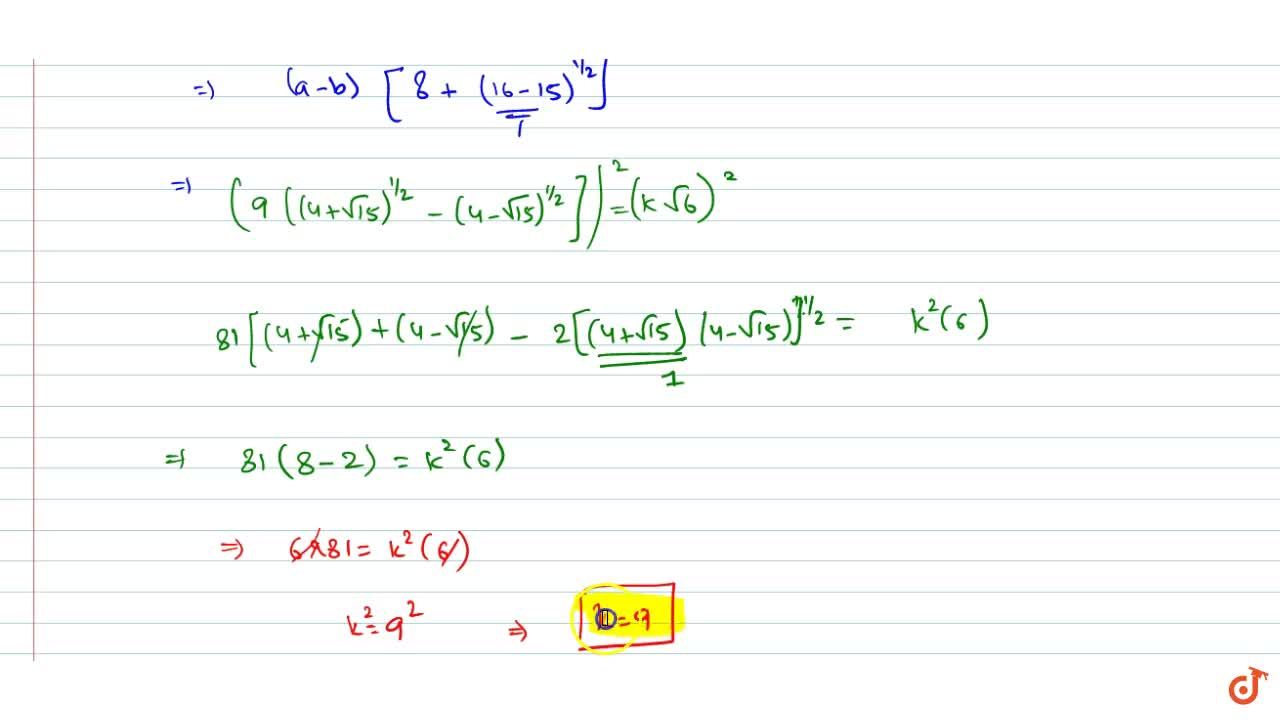 => (a-b) [8 + (16-15)^1/2]
1
=> (9 ((4+√15)^1/2 - (4-√15)^1/2])^2 = (k√6)^2
81[(4+√15)+(4-√15) - 2[(4+√15)(4-√15)]^1/2 = k^2(6)
1
=> 81(8-2) = k^2(6)
=> 6×81 = k^2(6)
k^2 = 9^2 => =9